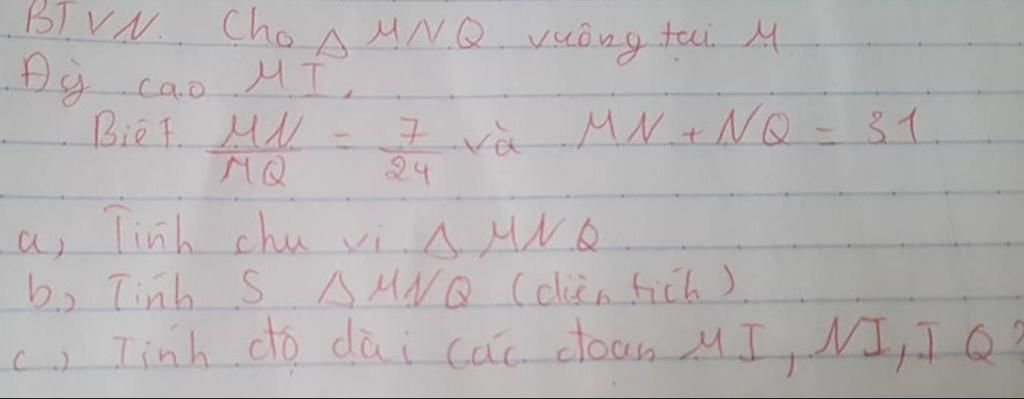 BTVN. Cho △ MNQ vuông tại M
Đg cao MI.
Biết MN/MQ = 7/24 và MN + NQ = 31
a, Tính chu vi △ MNQ
b, Tính S △ MNQ (diện tích)
c, Tính độ dài các đoạn MI, NI, IQ?